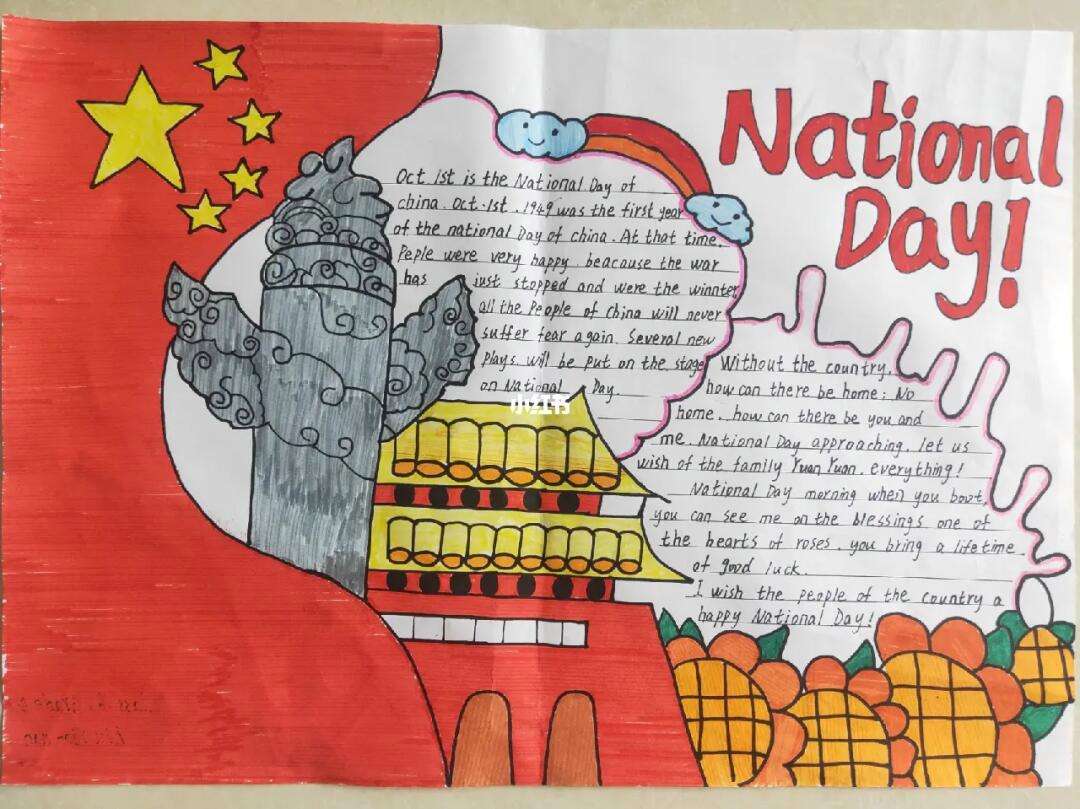 National
Day!
Oct 1st is the National Day of
china. Oct.1st.1949 was the first year
of the national Day of china. At that time.
Peple were very happy beacause the war
has just stopped and were the winnter
all the People of China will never
suffer fear again. Several new
Plays will be put on the stage
on National Day.
小红书
Without the country,
how can there be home; No
home. how can there be you and
me. National Day approaching. let us
wish of the family Yuan Yuan. everything!
National Day morning when you boot,
you can see me on the blessings one of
the hearts of roses. you bring a lifetime
of good luck.
I wish the people of the country a
happy National Day!